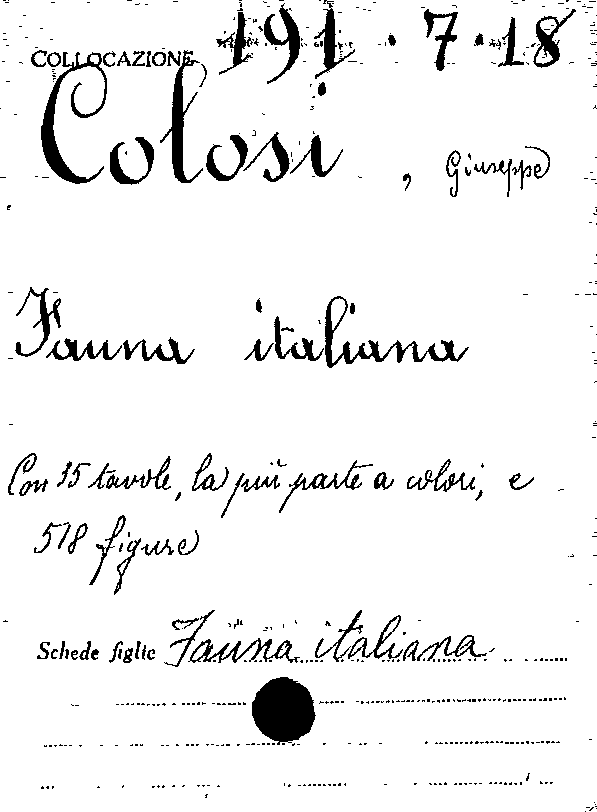 COLLOCAZIONE 191.7.18
Colosi, Giuseppe
Fauna italiana
Con 35 tavole, la più parte a colori, e
578 figure
Schede figlie Fauna italiana